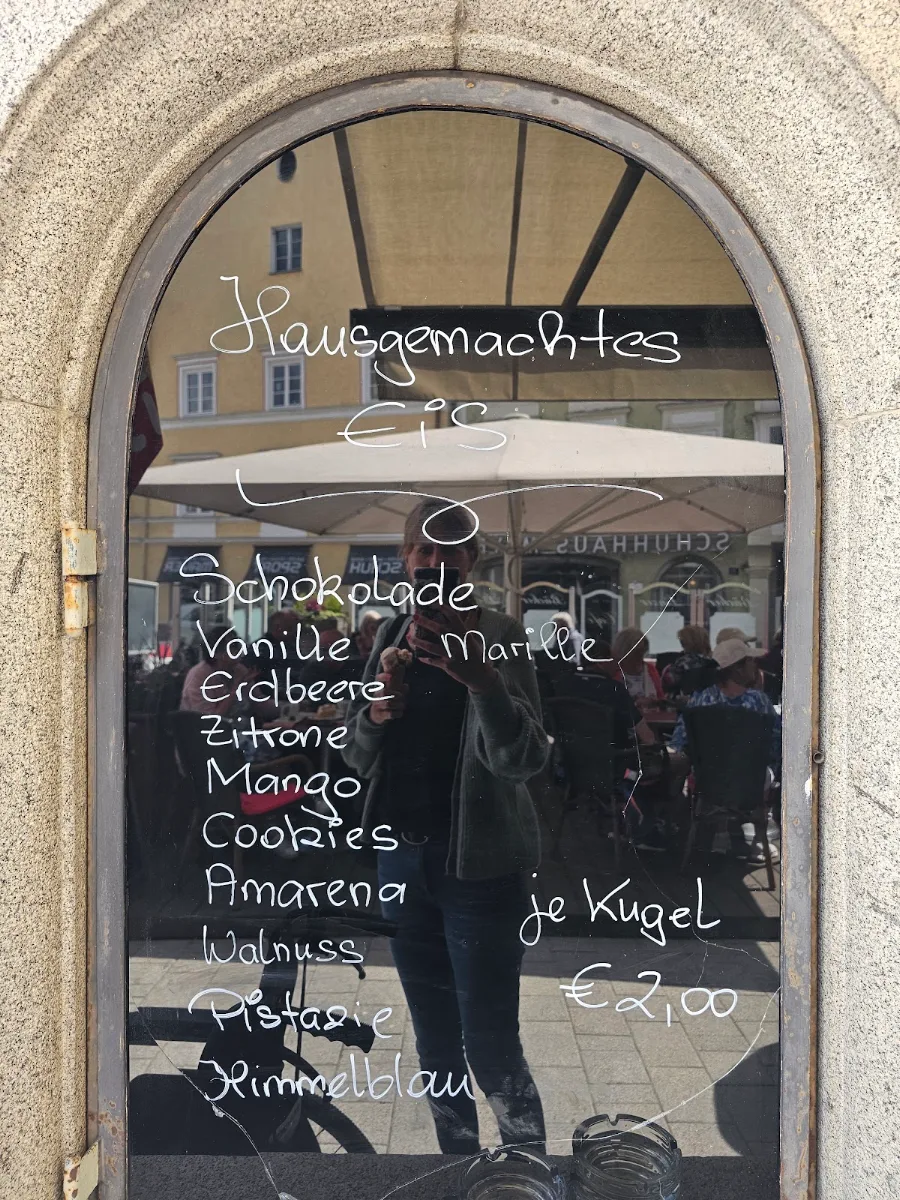 Hausgemachtes
Eis
Schokolade
Vanille Marille
Erdbeere
Zitrone
Mango
Cookies
Amarena
Walnuss
Pistazie
Himmelblau
je Kugel
€ 2,00
SCHUHHAUS